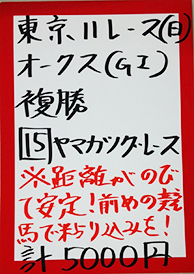 東京11レース(日)
オークス(GI)
複勝
15ヤマガソグレース
※距離がのび
て安定!前めの競
馬で粘り込みを!
計5000円